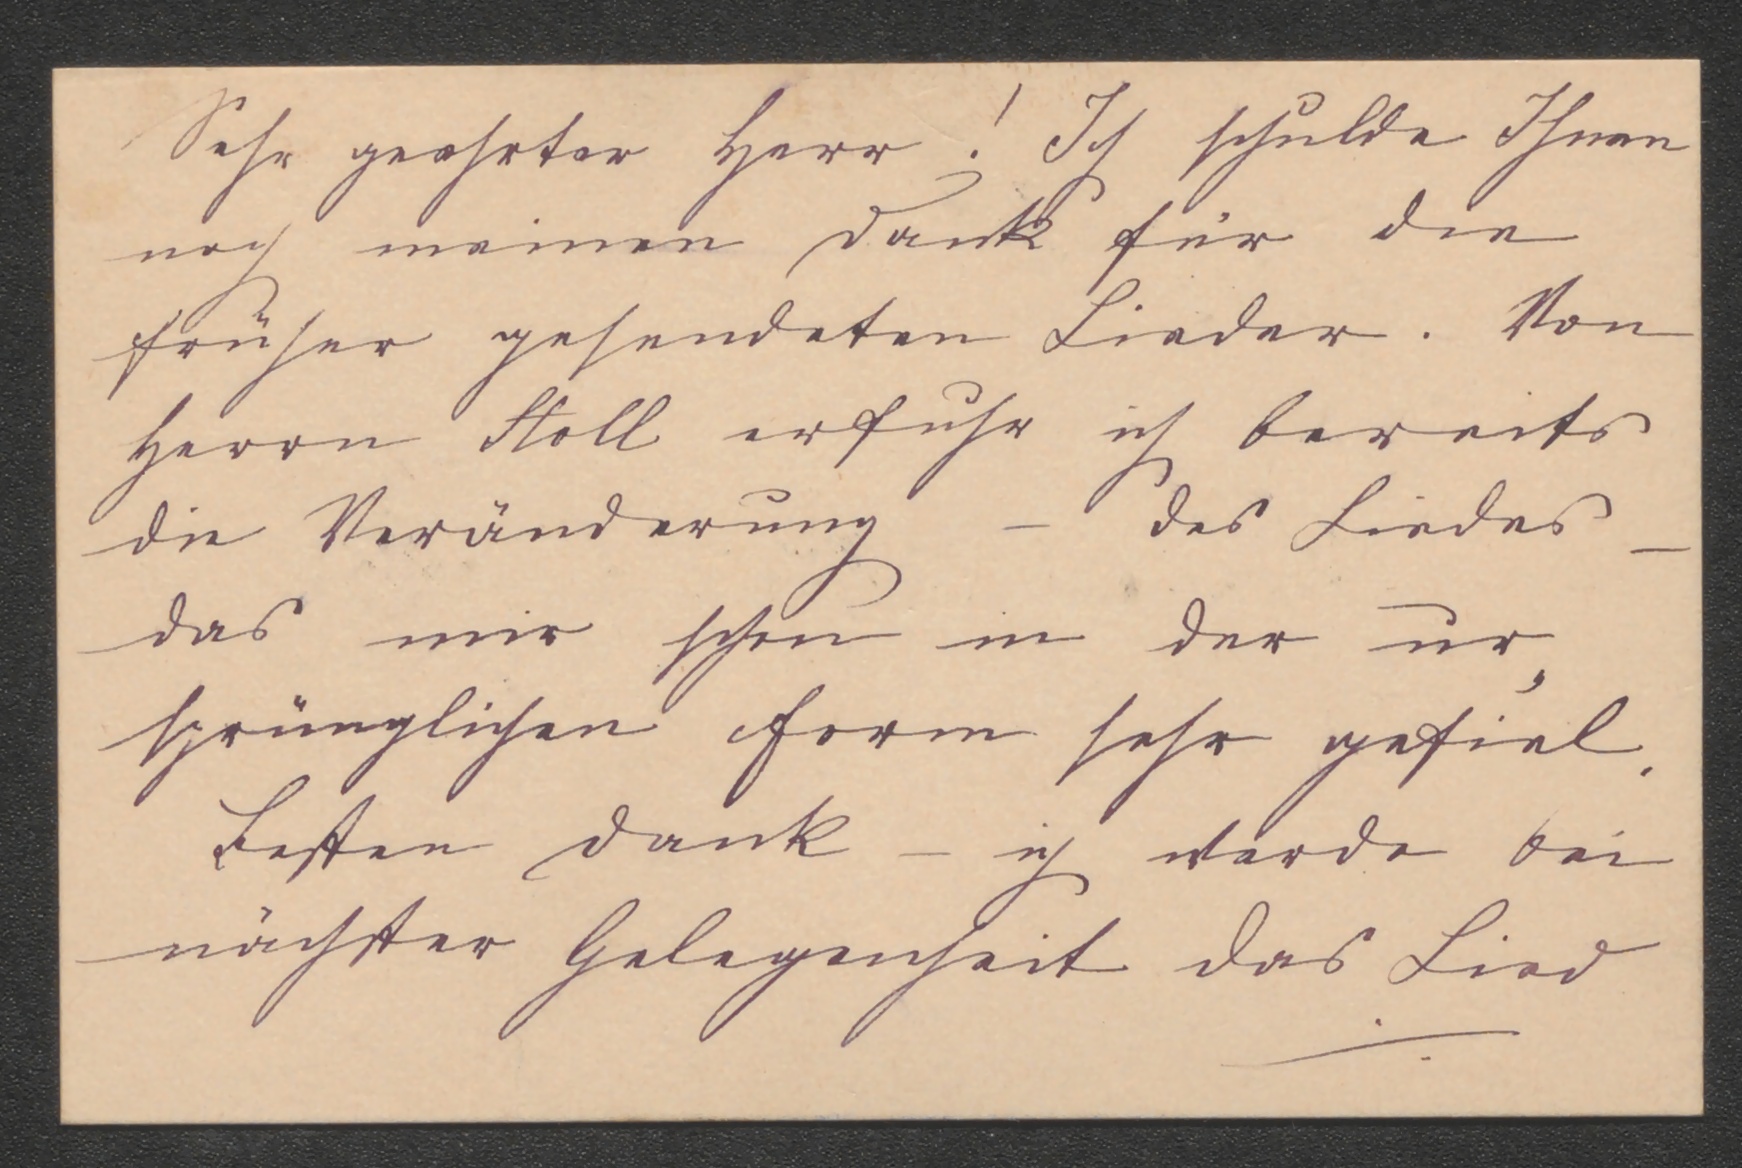 Sehr geehrter Herr! Ich schulde Ihnen
noch meinen Dank für die
früher gesendeten Lieder. Von
Herrn Stoll erfuhr ich bereits
die Veränderung – des Liedes –
das mir schon in der ur„
sprünglichen Form sehr gefiel.
Besten Dank – ich werde bei
nächster Gelegenheit das Lied